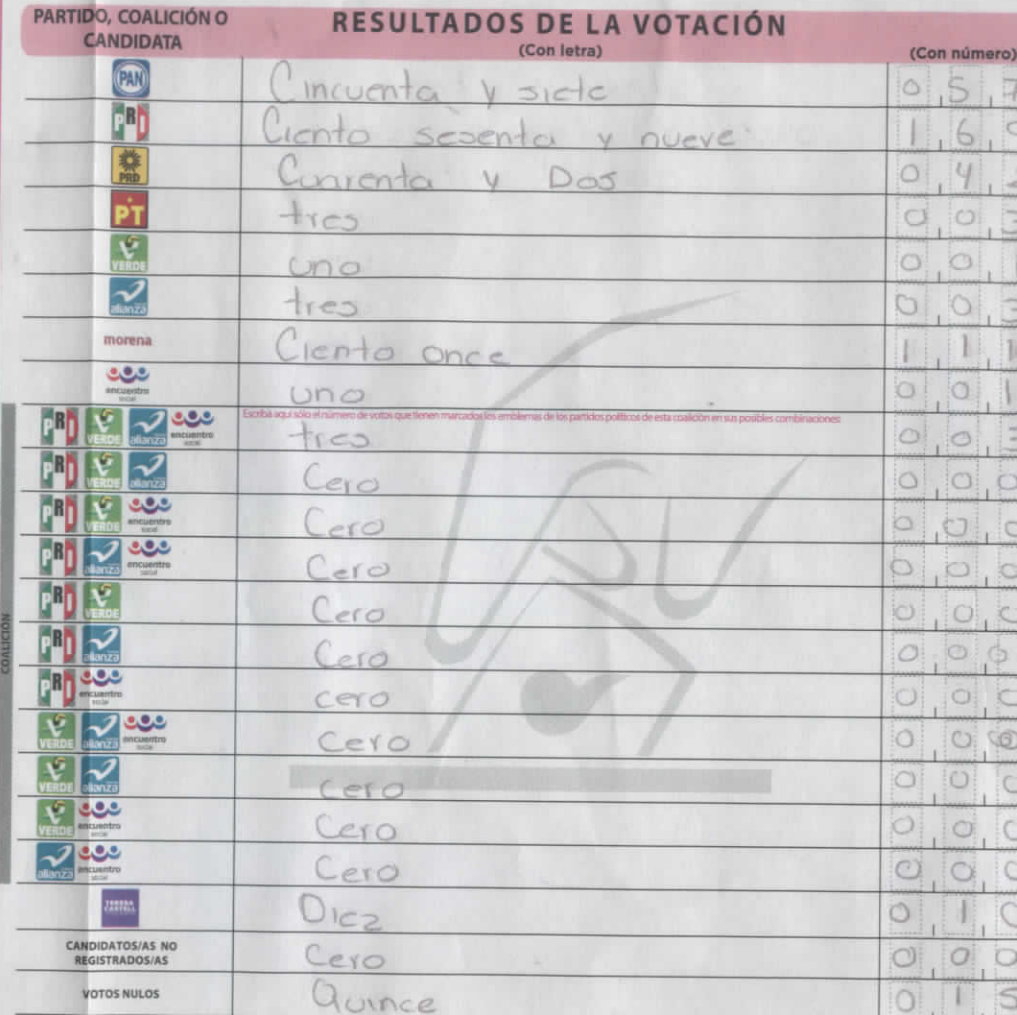 PARTIDO, COALICIÓN O
CANDIDATA
RESULTADOS DE LA VOTACIÓN
(Con letra)
(Con número)
PAN Cincuenta y siete 0 5 7
PRI Ciento sesenta y nueve 1 6
PRD Cuarenta y Dos 0 4
PT tres 0 0 3
VERDE uno 0 0
alianza tres 0 0 3
morena Ciento once 1 1 1
encuentro social uno 0 0 1
Escriba aquí sólo el número de votos que tienen marcados los emblemas de los partidos políticos de esta coalición en sus posibles combinaciones:
PRI VERDE alianza encuentro social tres 0 0 3
PRI VERDE alianza Cero 0 0 0
PRI VERDE encuentro social Cero 0 0 0
PRI alianza encuentro social Cero 0 0 0
PRI VERDE Cero 0 0 0
PRI alianza Cero 0 0 0
PRI encuentro social cero 0 0 0
VERDE alianza encuentro social Cero 0 0 0
VERDE alianza cero 0 0 0
VERDE encuentro social Cero 0 0 0
alianza encuentro social Cero 0 0 0
COALICIÓN
TERESA CASTELL Diez 0 1 0
CANDIDATOS/AS NO
REGISTRADOS/AS Cero 0 0 0
VOTOS NULOS Quince 0 1 5